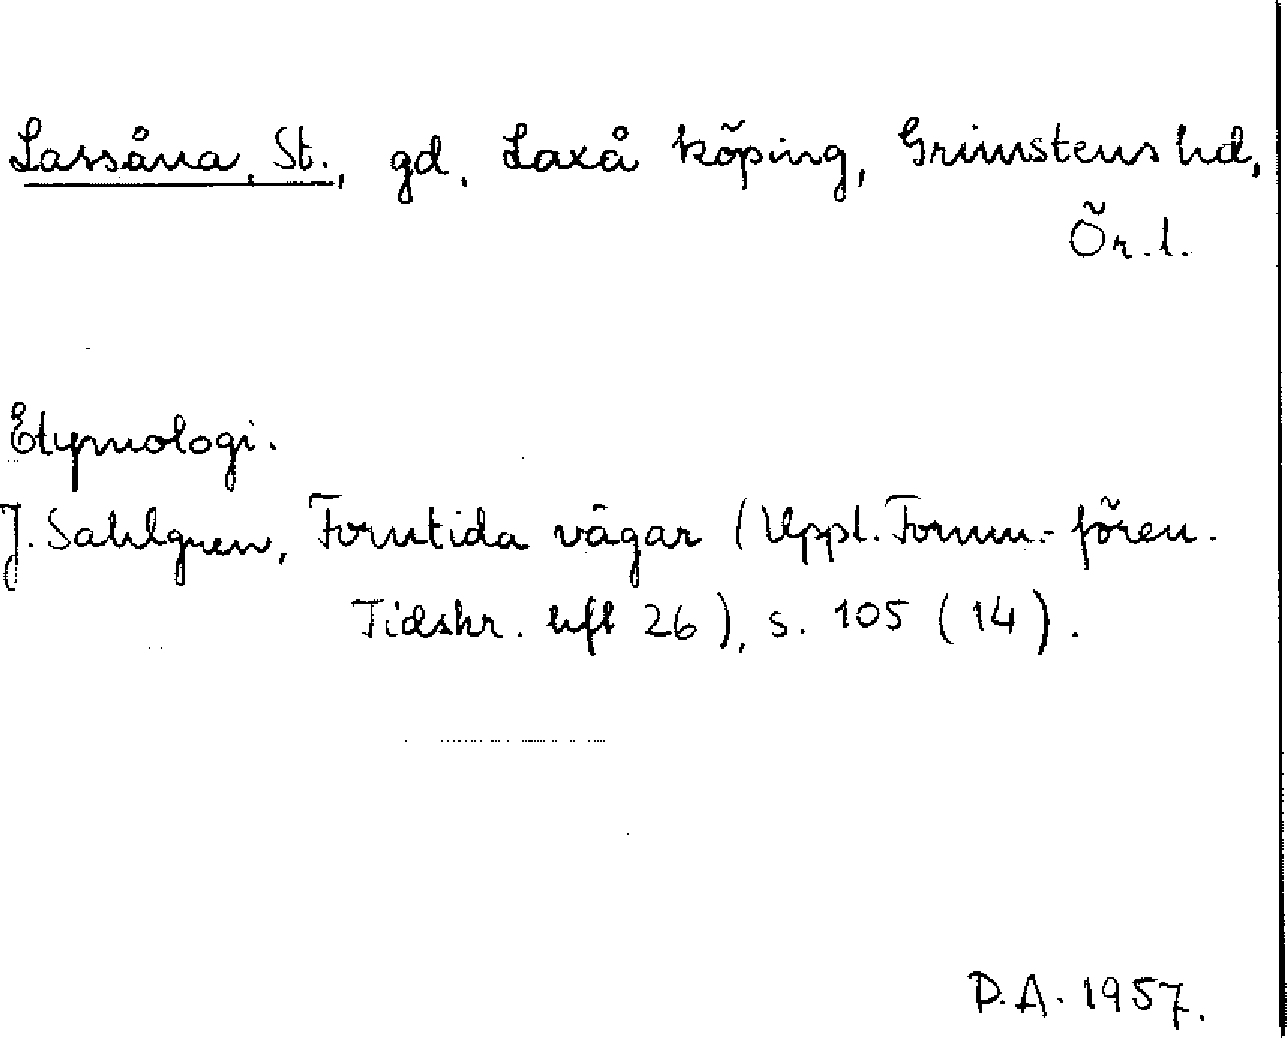 Lassåna, St., gd. Laxå köping, Grimstens hd,
Ör. l.
Etymologi.
J. Sahlgren, Forntida vägar (Uppl. Fornm.-fören.
Tidskr. hft 26), s. 105 (14).
D.A. 1957.